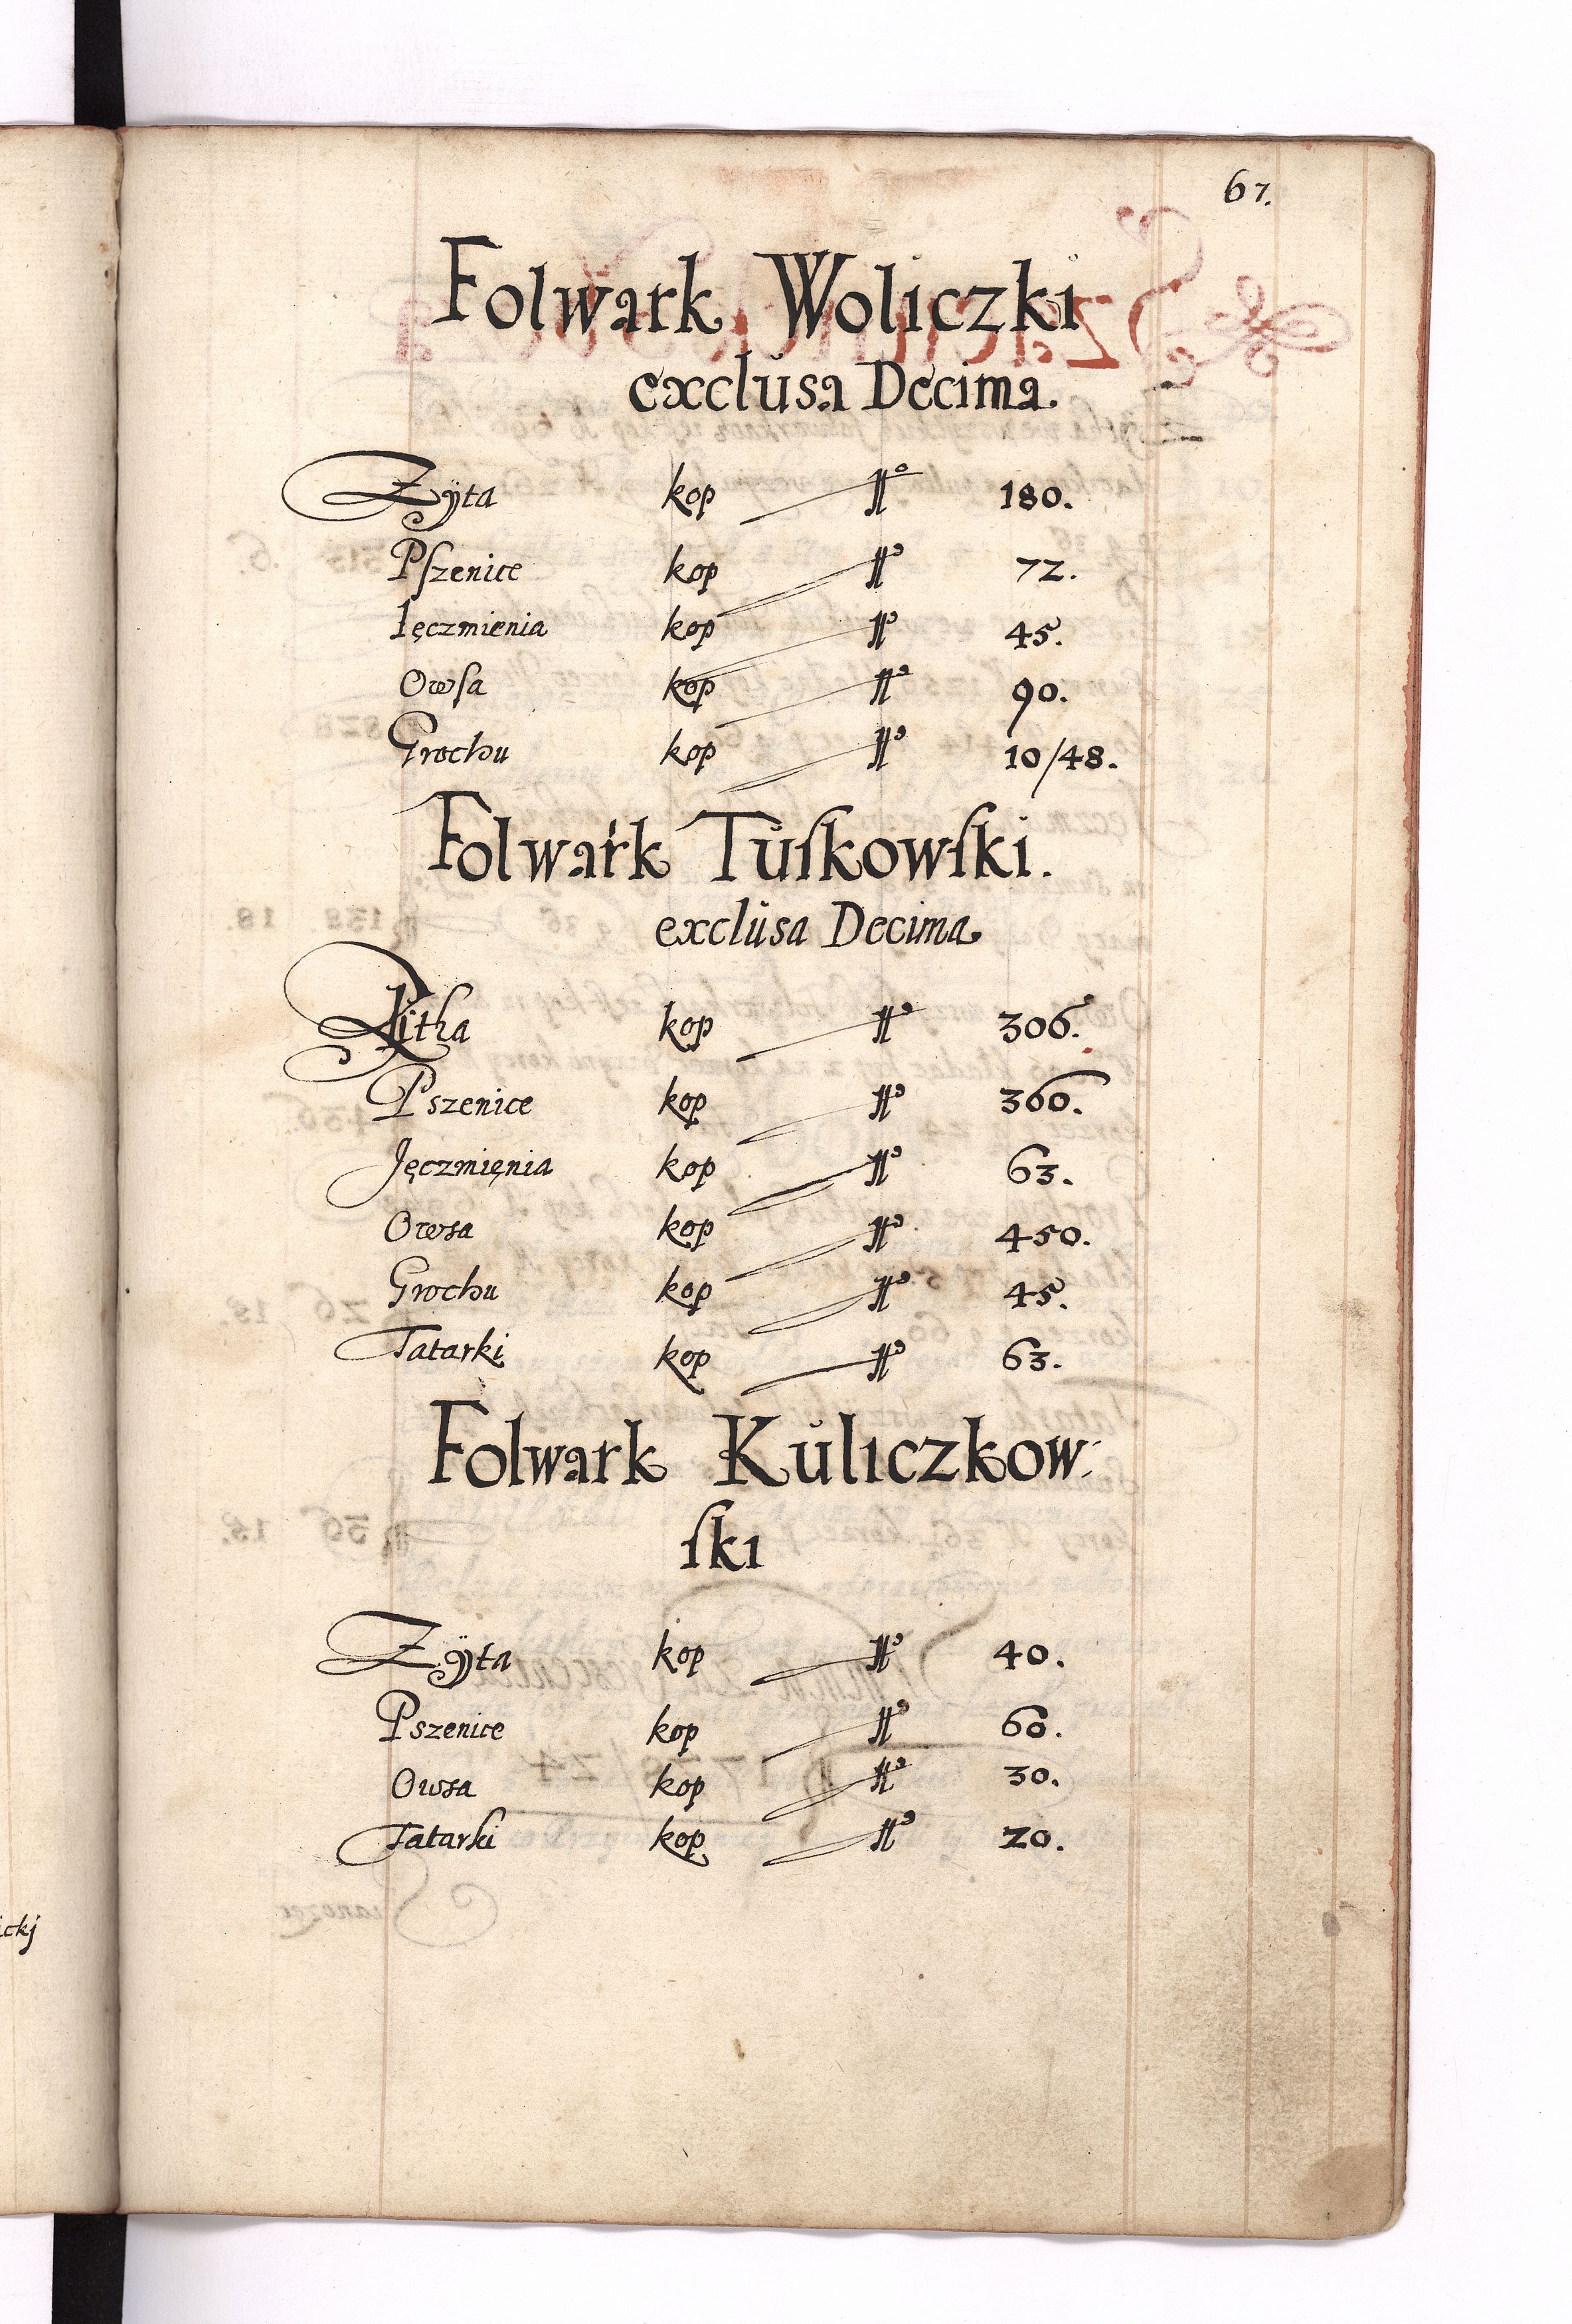 67.
Folwark Woliczki
exclusa Decima.
Zÿta kop No 180.
Pſzenice kop No 72.
Ięczmienia kop No 45.
Owſa kop No 90.
Grochu kop No 10/48.
Folwark Tuſkowſki.
exclusa Decima
Zitha kop No 306.
Pszenice kop No 360.
Jęczmięnia kop No 63.
Owsa kop No 450.
Grochu kop No 45.
Tatarki kop No 63.
Folwark Kuliczkow
ſki
Zÿta kop No 40.
Pszenice kop No 60.
Owsa kop No 30.
Tatarki kop No 20.